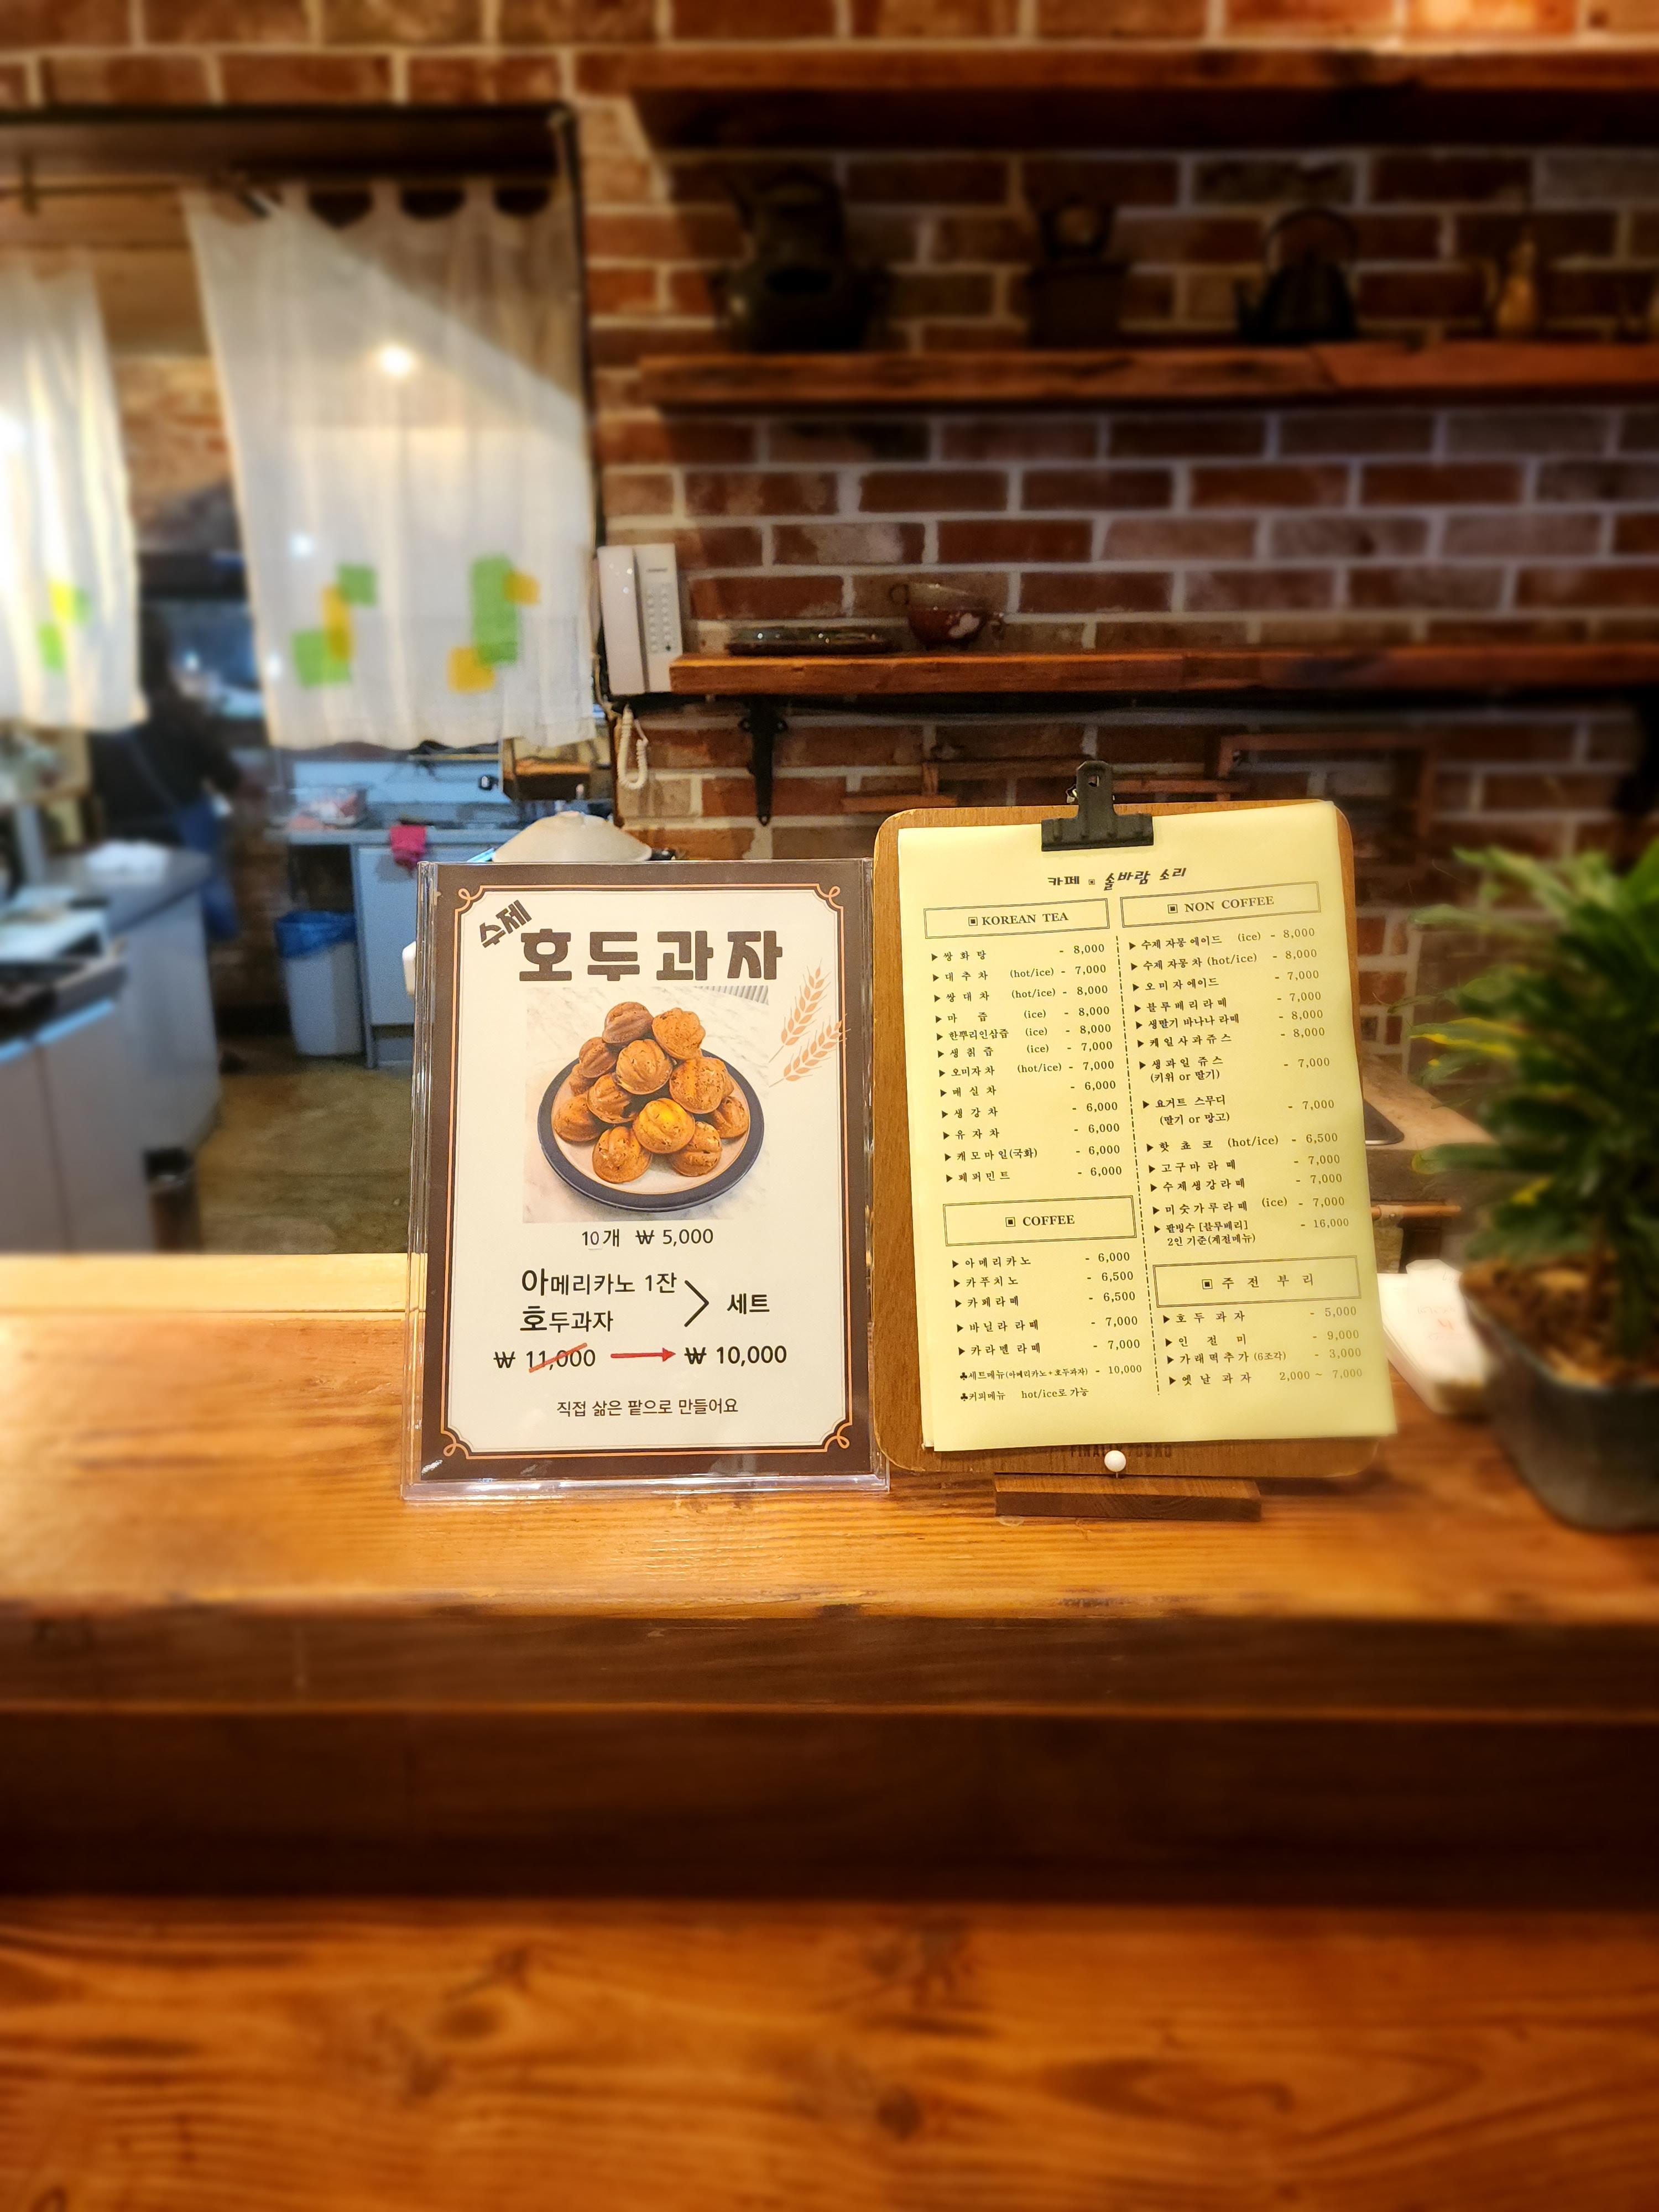 수제
호두과자
10개 ₩ 5,000
아메리카노 1잔
호두과자
세트
₩ 11,000 → ₩ 10,000
직접 삶은 팥으로 만들어요
카페 ▣ 솔바람 소리
▣ KOREAN TEA
▶ 쌍 화 탕 - 8,000
▶ 대 추 차 (hot/ice) - 7,000
▶ 쌍 대 차 (hot/ice) - 8,000
▶ 마 즙 (ice) - 8,000
▶ 한뿌리인삼즙 (ice) - 8,000
▶ 생 칡 즙 (ice) - 7,000
▶ 오미자차 (hot/ice) - 7,000
▶ 매 실 차 - 6,000
▶ 생 강 차 - 6,000
▶ 유 자 차 - 6,000
▶ 캐 모 마 일(국화) - 6,000
▶ 페 퍼 민 트 - 6,000
▣ COFFEE
▶ 아 메 리 카 노 - 6,000
▶ 카 푸 치 노 - 6,500
▶ 카 페 라 떼 - 6,500
▶ 바 닐 라 라 떼 - 7,000
▶ 카 라 멜 라 떼 - 7,000
♣세트메뉴(아메리카노+호두과자) - 10,000
♣커피메뉴 hot/ice로 가능
▣ NON COFFEE
▶ 수제 자몽 에이드 (ice) - 8,000
▶ 수제 자몽 차 (hot/ice) - 8,000
▶ 오 미 자 에이드 - 7,000
▶ 블 루 베 리 라 떼 - 7,000
▶ 생딸기 바나나 라떼 - 8,000
▶ 케 일 사 과 쥬 스 - 8,000
▶ 생 과 일 쥬 스 - 7,000
(키위 or 딸기)
▶ 요거트 스무디 - 7,000
(딸기 or 망고)
▶ 핫 쵸 코 (hot/ice) - 6,500
▶ 고 구 마 라 떼 - 7,000
▶ 수 제 생 강 라 떼 - 7,000
▶ 미 숫 가 루 라 떼 (ice) - 7,000
▶ 팥빙수 [블루베리] - 16,000
2인 기준(계절메뉴)
▣ 주 전 부 리
▶ 호 두 과 자 - 5,000
▶ 인 절 미 - 9,000
▶ 가 래 떡 추 가 (6조각) - 3,000
▶ 옛 날 과 자 2,000 ~ 7,000